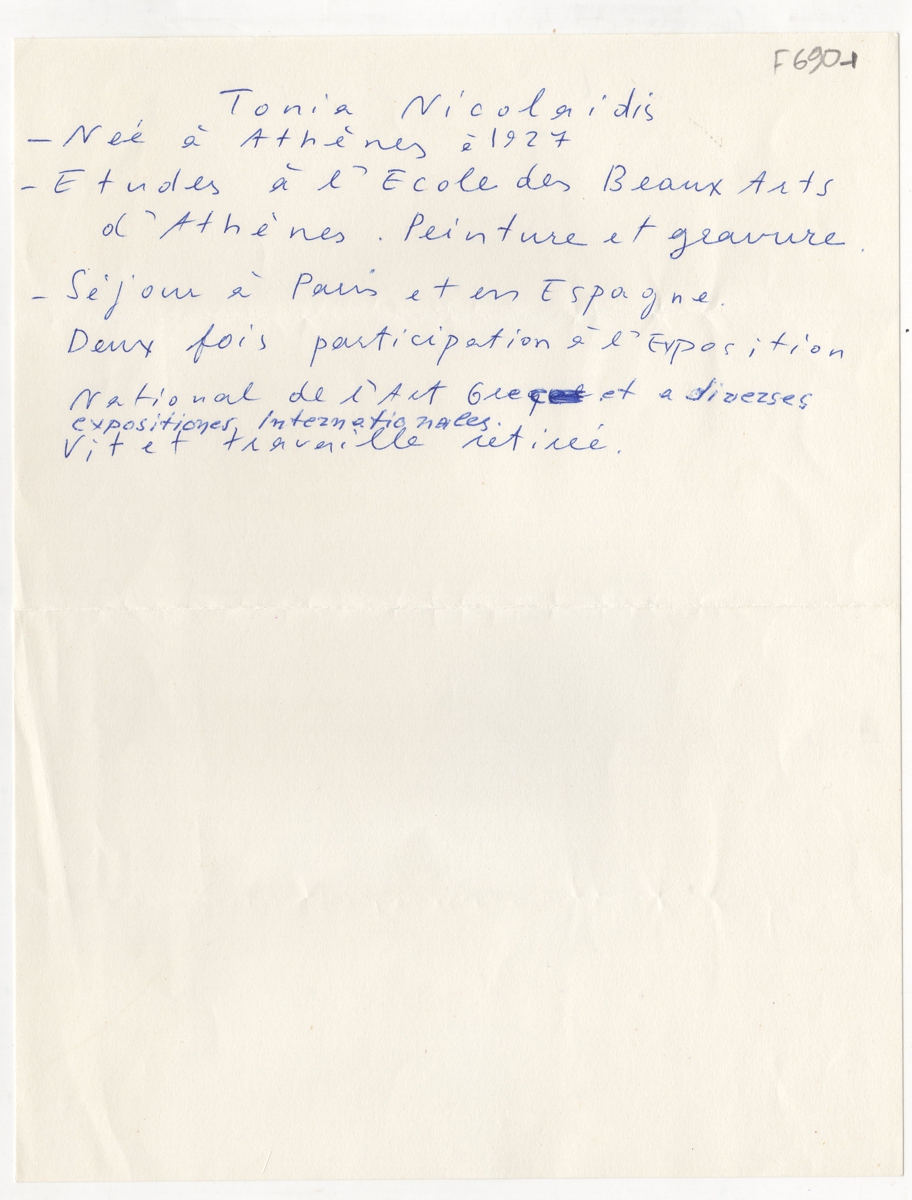 F690-1
Tonia Nicolaidis
- Neé à Athènes è 1927
- Etudes à l'Ecole des Beaux Arts
d'Athènes. Peinture et gravure.
- Séjour à Paris et en Espagne.
Deux fois participation à l'Exposition
National de l'Art Grec et a diverses
expositiones, Internationales.
Vit et travaille retireé.